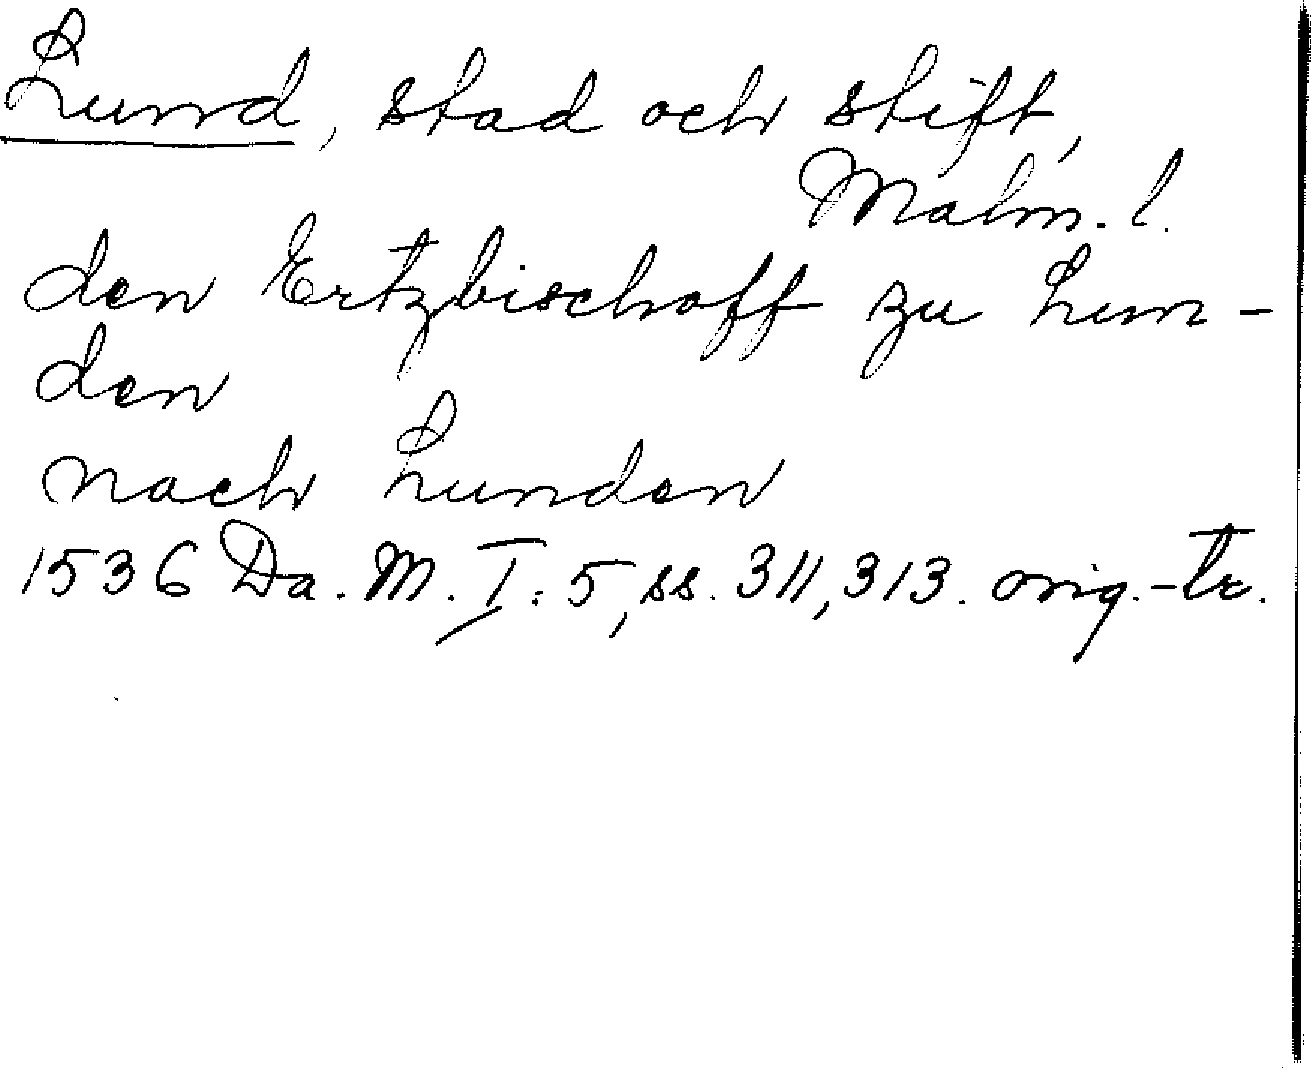 Lund, stad och stift,
Malm. l.
den Ertzbischoff zu Lun-
den
nach Lunden
1536 Da. M. I: 5, ss. 311, 313. orig.-tr.